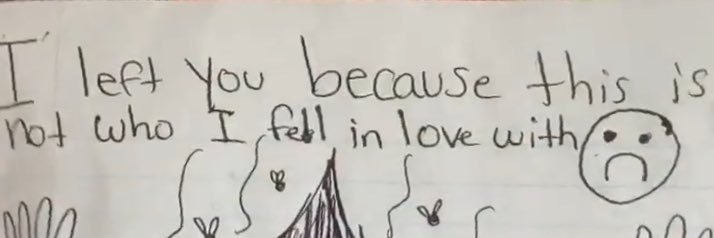 I left you because this is
not who I fell in love with